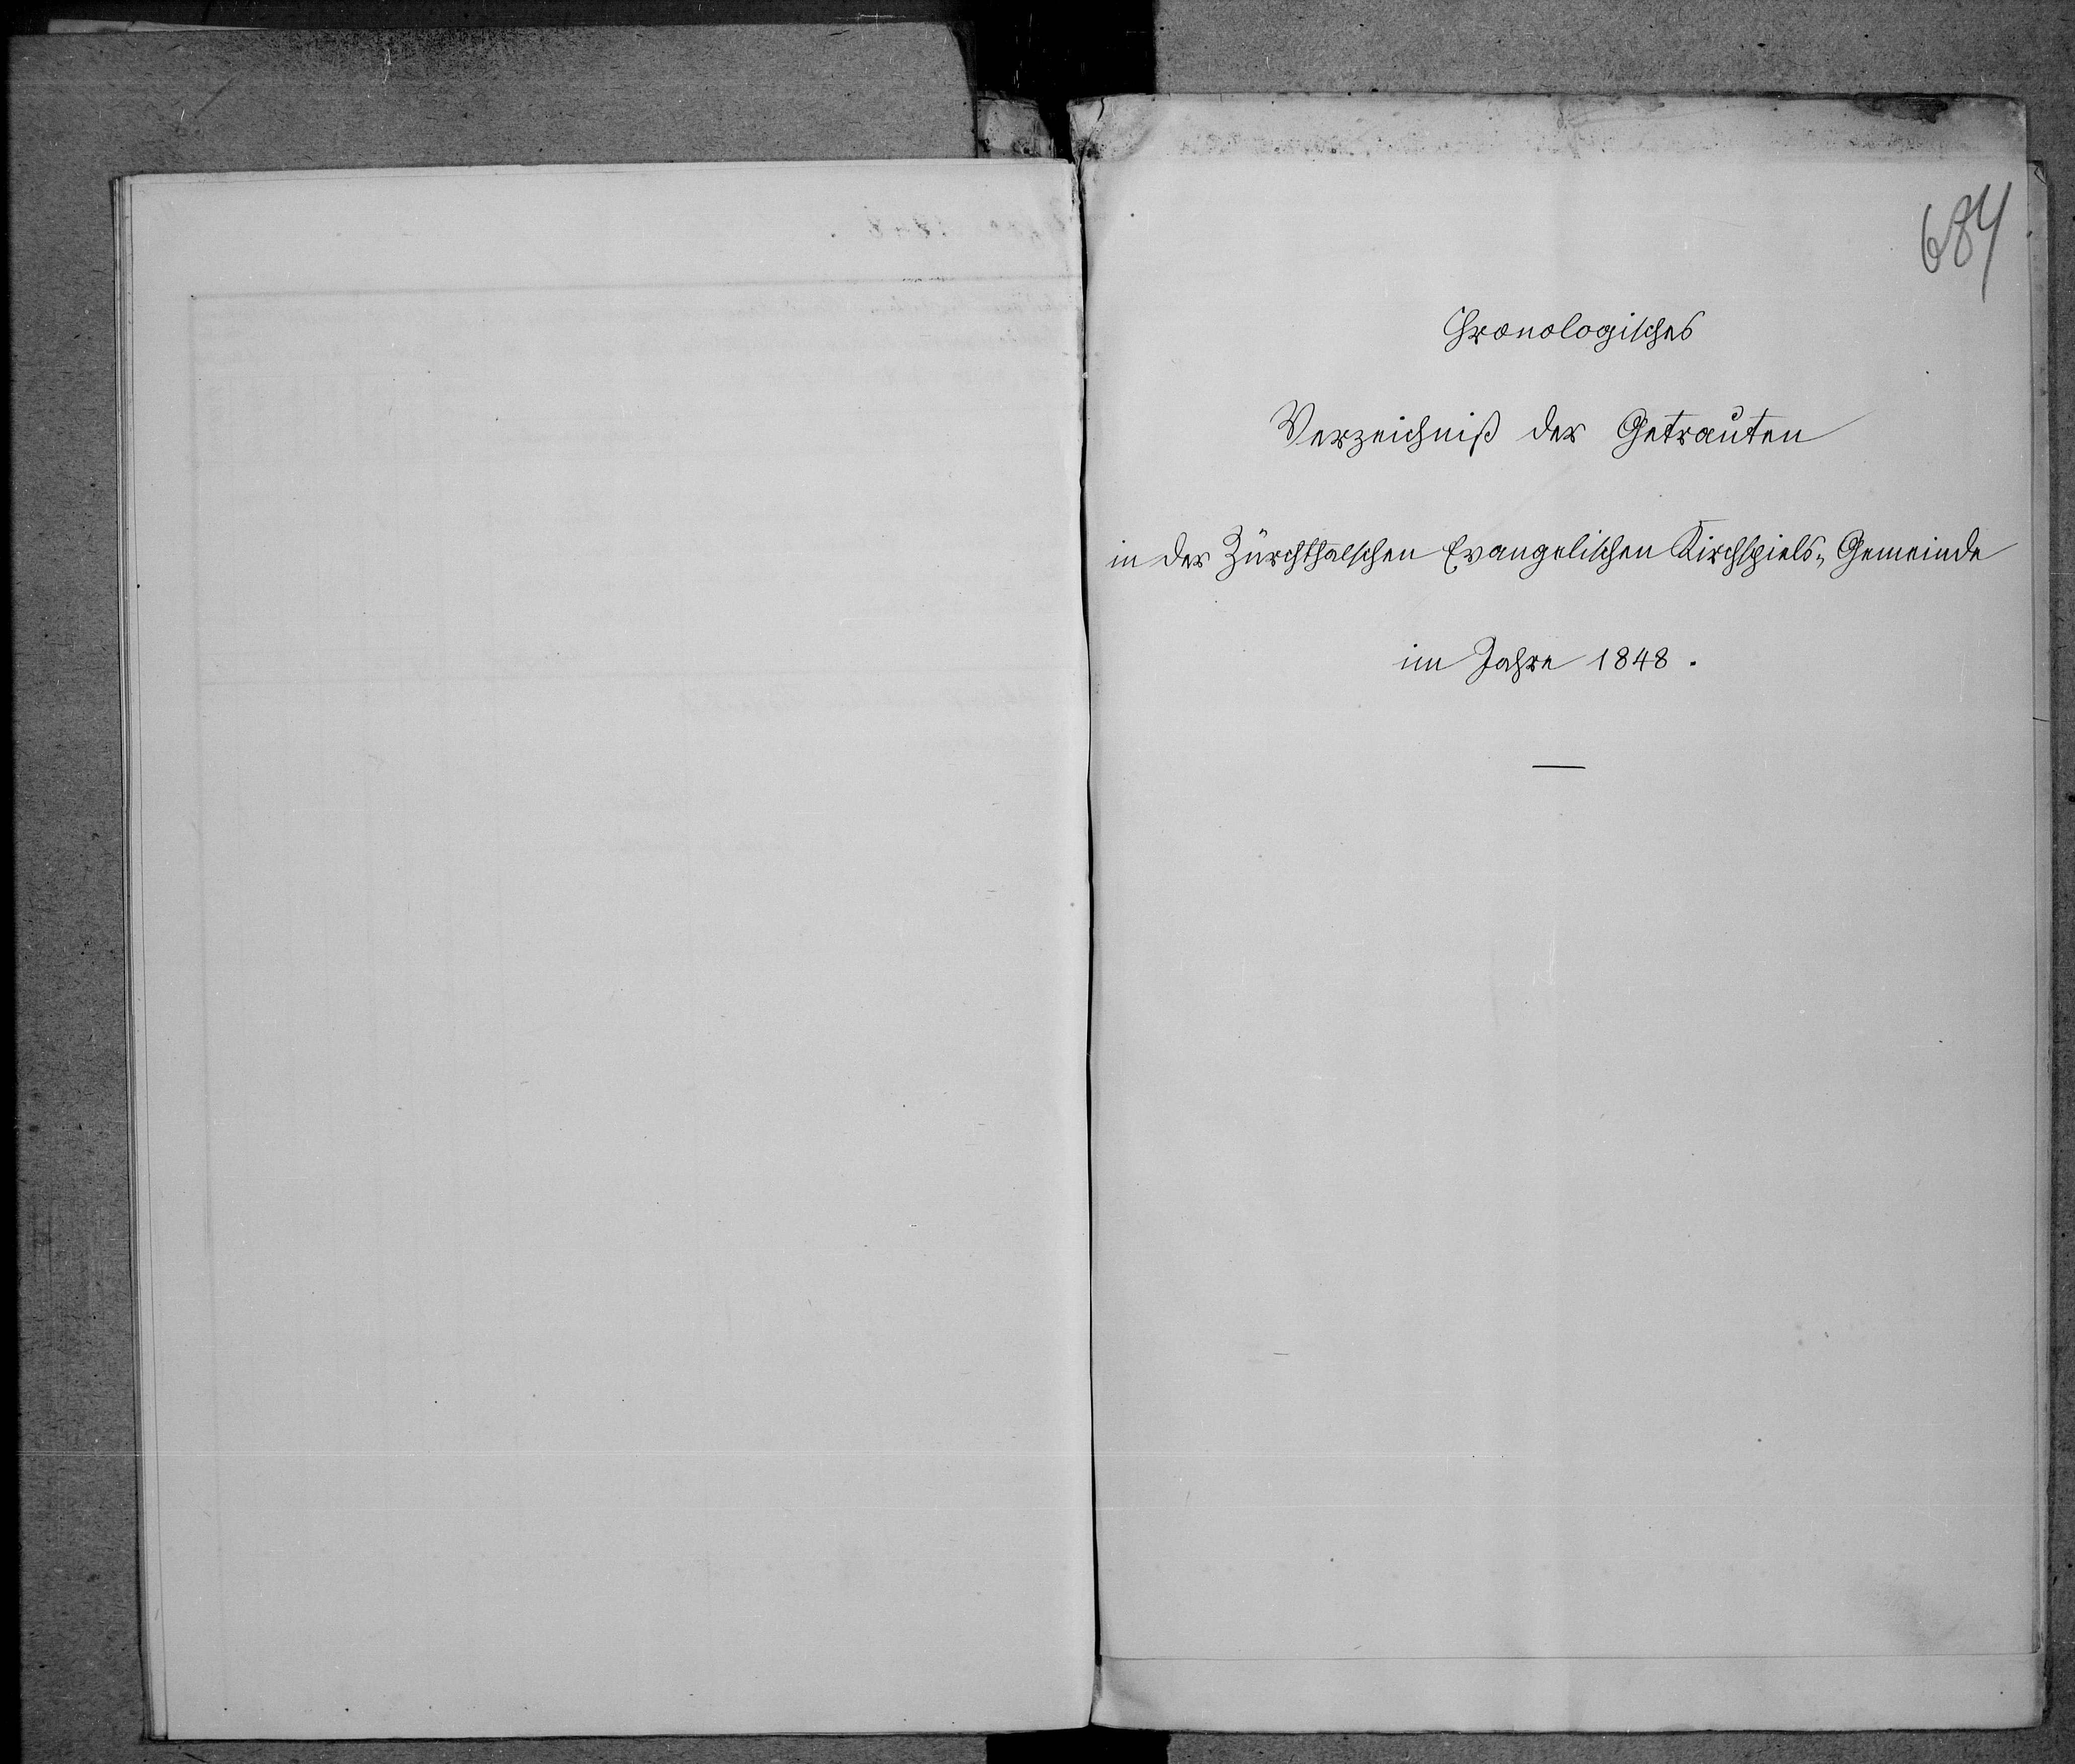 684
Chronologisches
Verzeichniß der Getrauten
in der Zürchthalschen Evangelischen Kirchspiels-Gemeinde
im Jahre 1848.